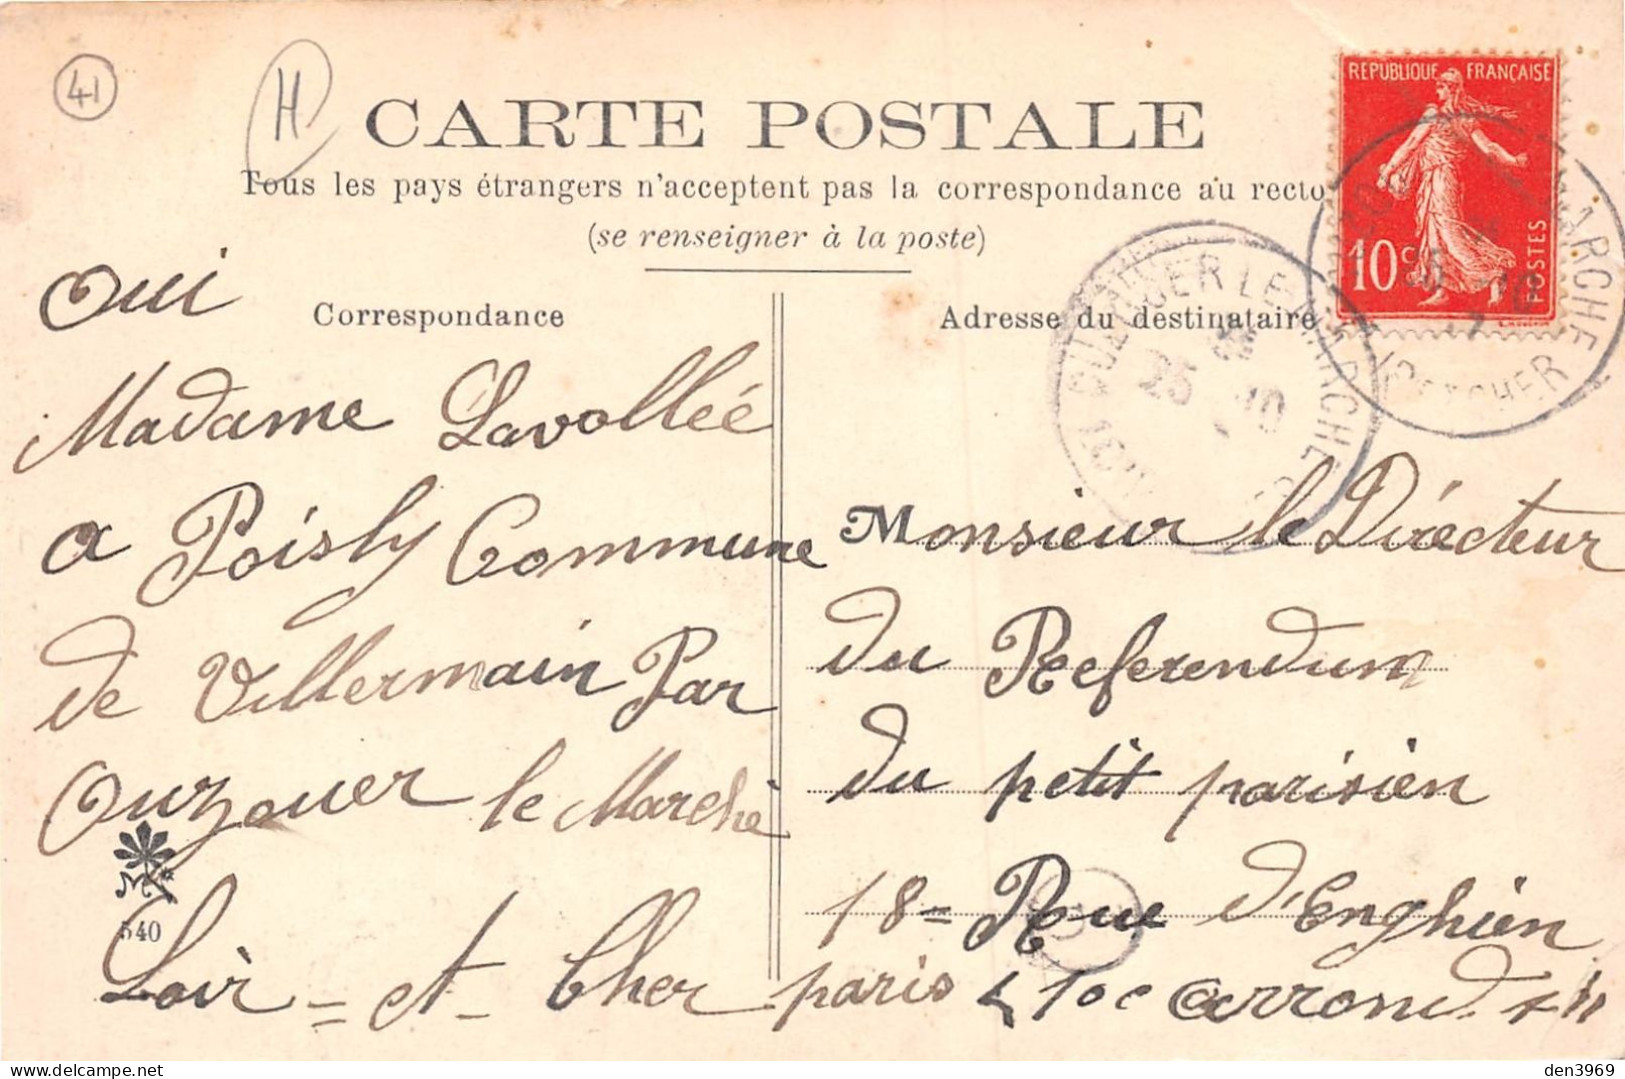 41
H
CARTE POSTALE
Tous les pays étrangers n'acceptent pas la correspondance au recto
(se renseigner à la poste)
REPUBLIQUE FRANÇAISE
10 c
POSTES
OUZOUER LE MARCHE
25 10
MARCHE
LOIR ET CHER
Correspondance
Oui
Madame Lavollée
a Poisly Commune
de Villermain Par
Ouzouer le Marché
Loir = et - Cher
540
Adresse du destinataire
Monsieur le Directeur
du Referendum
du petit parisien
18 = Rue d'Enghien
paris 10e arrond
den3969